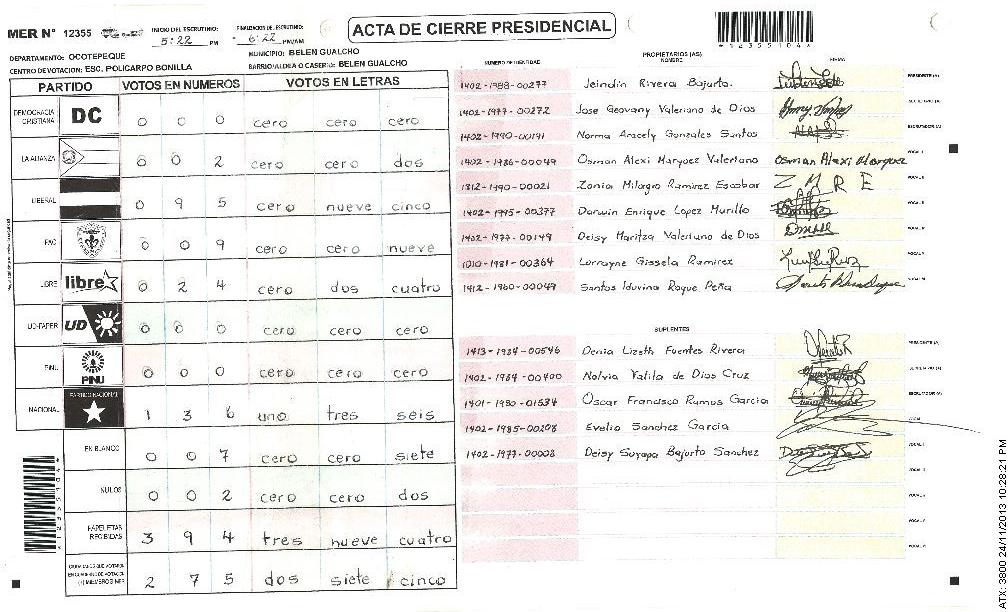 MER N° 12355
INICIO DEL ESCRUTINIO: 5:22 PM
FINALIZACION DE ESCRUTINIO: 6:22 PM/AM
ACTA DE CIERRE PRESIDENCIAL
*12355104*
DEPARTAMENTO: OCOTEPEQUE
MUNICIPIO: BELEN GUALCHO
CENTRO DE VOTACION: ESC. POLICARPO BONILLA
BARRIO/ALDEA O CASERIO: BELEN GUALCHO
PARTIDO VOTOS EN NUMEROS VOTOS EN LETRAS
DEMOCRACIA CRISTIANA DC 0 0 0 cero cero cero
LA ALIANZA 0 0 2 cero cero dos
LIBERAL 0 9 5 cero nueve cinco
PAC 0 0 9 cero cero nueve
LIBRE libre 0 2 4 cero dos cuatro
UD-FAPER UD 0 0 0 cero cero cero
PINU PINU 0 0 0 cero cero cero
NACIONAL PARTIDO NACIONAL 1 3 6 uno tres seis
EN BLANCO 0 0 7 cero cero siete
NULOS 0 0 2 cero cero dos
PAPELETAS RECIBIDAS 3 9 4 tres nueve cuatro
CIUDADANOS QUE VOTARON EN CUADERNO DE VOTACION (+) MIEMBROS MER 2 7 5 dos siete cinco
PROPIETARIOS (AS)
NUMERO DE IDENTIDAD NOMBRE FIRMA
1402-1988-00277 Jeindin Rivera Bajurto. PRESIDENTE (A)
1402-1977-00272 Jose Geovany Valeriano de Dios SECRETARIO (A)
1402-1990-00191 Norma Aracely Gonzales Santos ESCRUTADOR (A)
1402-1986-00049 Osman Alexi Marquez Valeriano Osman Alexi Marquez VOCAL I
1312-1990-00021 Zonia Milagro Ramirez Escobar Z M R E VOCAL II
1402-1995-00377 Darwin Enrique Lopez Murillo
1402-1977-00149 Deisy Maritza Valeriano de Dios
1010-1981-00364 Lorrayne Gissela Ramirez
1412-1960-00049 Santos Iduvina Roque Peña
SUPLENTES
1413-1984-00546 Denia Lizeth Fuentes Rivera PRESIDENTE (A)
1402-1984-00400 Nolvia Yatila de Dios Cruz SECRETARIO (A)
1401-1980-01534 Oscar Francisco Ramos Garcia ESCRUTADOR (A)
1402-1985-00208 Evelio Sanchez Garcia
1402-1977-00008 Deisy Suyapa Bajurto Sanchez
ATX: 3800 24/11/2013 10:28:21 PM